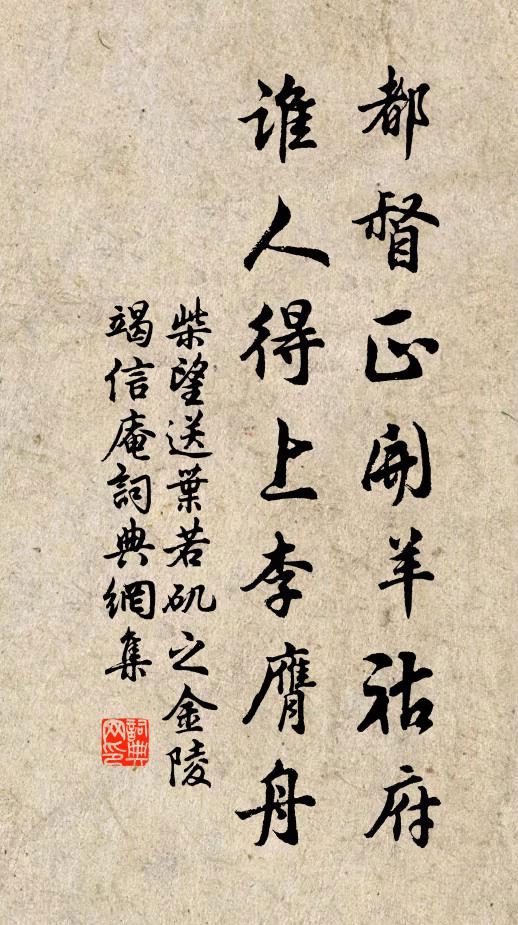 都督正開羊祜府
誰人得上李膺舟
柴望送葉若矶之金陵
竭信庵詞典網集
詞典網印